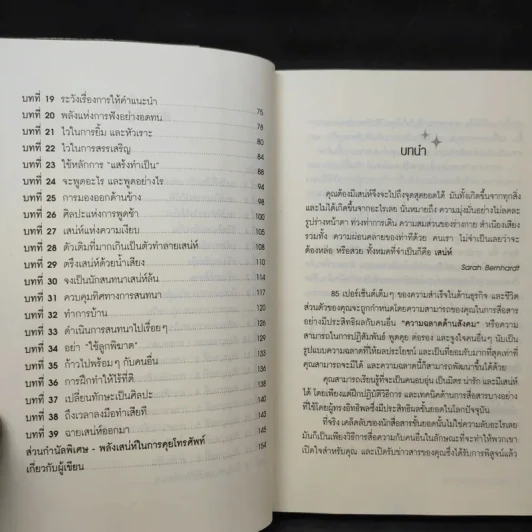 บทที่ 19 ระวังเรื่องการให้คำแนะนำ 75
บทที่ 20 พลังแห่งการฟังอย่างอดทน 78
บทที่ 21 ไวในการยิ้ม และหัวเราะ 80
บทที่ 22 ไวในการสรรเสริญ 84
บทที่ 23 ใช้หลักการ "แสร้งทำเป็น" 88
บทที่ 24 จะพูดอะไร และพูดอย่างไร 94
บทที่ 25 การมองออกด้านข้าง 98
บทที่ 26 ศิลปะแห่งการพูดช้า 100
บทที่ 27 เสน่ห์แห่งความเงียบ 105
บทที่ 28 ตัวเติมที่มากเกินเป็นตัวทำลายเสน่ห์ 108
บทที่ 29 ตรึงเสน่ห์ด้วยน้ำเสียง 111
บทที่ 30 จงเป็นนักสนทนาเสน่ห์ล้น 114
บทที่ 31 ควบคุมทิศทางการสนทนา 117
บทที่ 32 ทำการบ้าน 121
บทที่ 33 ดำเนินการสนทนาไปเรื่อยๆ
บทที่ 34 อย่า "ใช้ลูกพิฆาต" 129
บทที่ 35 ก้าวไปพร้อมๆ กับคนอื่น
บทที่ 36 การฝึกทำให้ไร้ที่ติ 136
บทที่ 37 เปลี่ยนทักษะเป็นศิลปะ 140
บทที่ 38 ถึงเวลาลงมือทำเสียที 143
บทที่ 39 ฉายเสน่ห์ออกมา 145
ส่วนกำนัลพิเศษ - พลังเสน่ห์ในการคุยโทรศัพท์ 154
เกี่ยวกับผู้เขียน
บทนำ
คุณต้องมีเสน่ห์จึงจะไปถึงจุดสุดยอดได้ มันทั้งเกิดขึ้นจากทุกสิ่ง
และไม่ได้เกิดขึ้นจากอะไรเลย นั่นหมายถึง ความมุ่งมั่นอย่างไม่ลดละ
รูปร่างหน้าตา ท่วงท่าการเดิน ความสมส่วนของร่างกาย สำเนียงเสียง
รวมทั้ง ความผ่อนคลายของท่าทีด้วย คนเรา ไม่จำเป็นเลยว่าจะ
ต้องหล่อ หรือสวย ทั้งหมดที่จำเป็นก็คือ เสน่ห์
Sarah Bernhardt
85 เปอร์เซ็นต์เต็มๆ ของความสำเร็จในด้านธุรกิจ และชีวิต
ส่วนตัวของคุณจะถูกกำหนดโดยความสามารถของคุณในการสื่อสาร
อย่างมีประสิทธิผลกับคนอื่น "ความฉลาดด้านสังคม" หรือความ
สามารถในการปฏิสัมพันธ์ พูดคุย ต่อรอง และจูงใจคนอื่นๆ นับเป็น
รูปแบบความฉลาดที่ให้ผลประโยชน์ และเป็นที่ยอมรับมากที่สุดเท่าที่
คุณสามารถจะมีได้ และความฉลาดนี้ก็สามารถพัฒนาขึ้นได้ด้วย
คุณสามารถเรียนรู้ที่จะเป็นคนอบอุ่น เป็นมิตรน่ารัก และมีเสน่ห์
ได้ โดยเพียงแต่ฝึกปฏิบัติวิธีการ และเทคนิคด้านการสื่อสารบางอย่าง
ที่ใช้โดยผู้ทรงอิทธิพลซึ่งมีประสิทธิผลชั้นยอดในโลกปัจจุบัน
ที่จริง เคล็ดลับของนักสื่อสารชั้นยอดนั้นไม่ใช่ความลับอะไรเลย
มันก็เป็นเพียงวิธีการสื่อความกับคนอื่นในลักษณะที่จะทำให้พวกเขา
เปิดใจสำหรับคุณ และเปิดรับข่าวสารของคุณซึ่งได้รับการพิสูจน์แล้ว